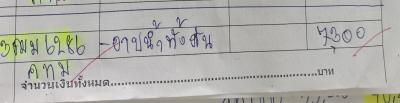 3ฒมม 6286 - อาบน้ำทั้งคัน 7300
คทม
จำนวนเงินทั้งหมด........บาท